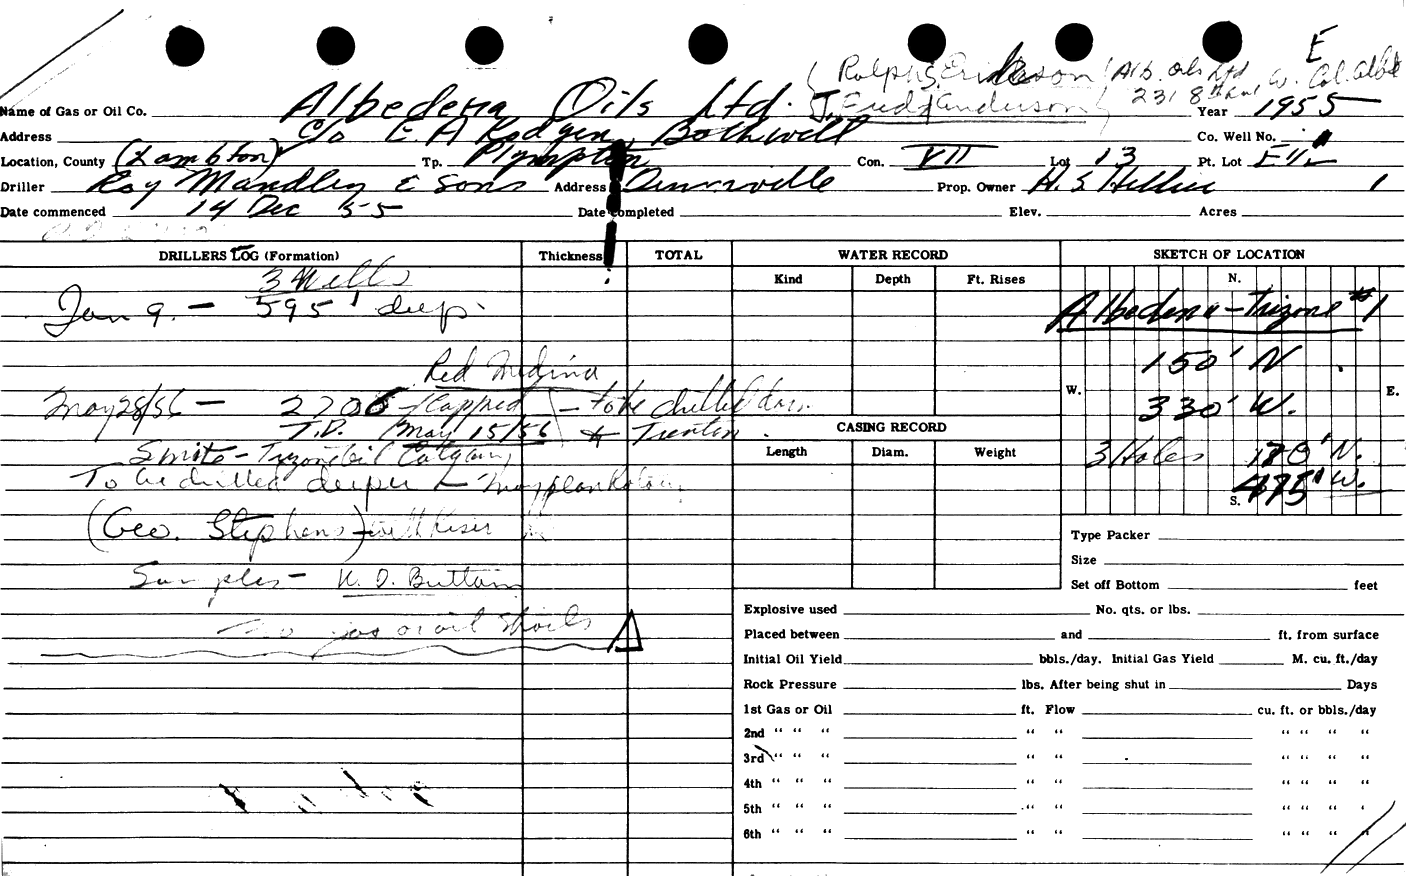 E
(Ralph S. Erickson (Alb. Oils Ltd W. Cal. Alta
J. Fred Anderson) 231 8th
Name of Gas or Oil Co. Albedena Oils Ltd. Year 1955
Address c/o E. A. Rodgers, Bothwell Co. Well No. 1
Location, County (Lambton) Tp. Plympton Con. VII Lot 13 Pt. Lot E 1/2
Driller Roy Mandley & Sons Address Dunnville Prop. Owner H. S. Hillier 1
Date commenced 14 Dec 55 Date completed Elev. Acres
DRILLERS LOG (Formation) Thickness TOTAL WATER RECORD SKETCH OF LOCATION
3 Wells Kind Depth Ft. Rises N.
Jan 9. - 595' deep. Albedena - Trizone #1
150' N
Red Medina W. E.
May 28/56 - 2706 - (Capped - to be drilled 330' W.
T.D. May 15/56 to Trenton. CASING RECORD
Smite - Trizone Oil Calgary Length Diam. Weight 3 Holes 170' N.
To be drilled deeper 475' W.
S.
(Geo. Stephens)
Type Packer
Size
Samples - Set off Bottom feet
Explosive used No. qts. or lbs.
no gas or oil shows
Placed between and ft. from surface
Initial Oil Yield bbls./day. Initial Gas Yield M. cu. ft./day
Rock Pressure lbs. After being shut in Days
1st Gas or Oil ft. Flow cu. ft. or bbls./day
2nd “ “ “ “ “ “ “ “ “
3rd “ “ “ “ “ “ “ “ “
4th “ “ “ “ “ “ “ “ “
5th “ “ “ “ “ “ “ “ “
6th “ “ “ “ “ “ “ “ “